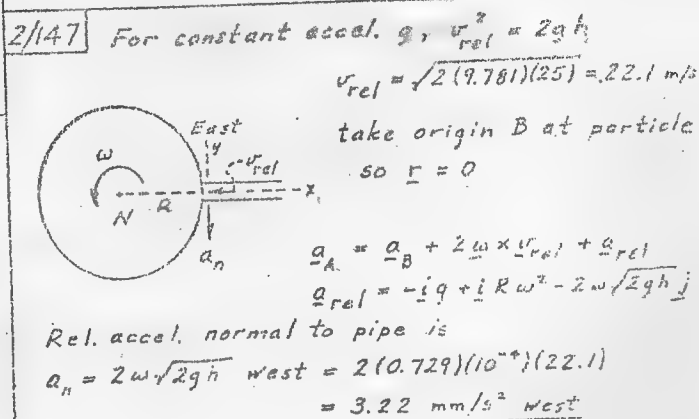 2/147 For constant accel. g, v_rel² = 2gh
v_rel = √2(9.781)(25) = 22.1 m/s
take origin B at particle
so r = 0
East
y
v_rel
ω
N
R
x
a_n
a_A = a_B + 2ω × v_rel + a_rel
a_rel = -ig + iRω² - 2ω√2gh j
Rel. accel. normal to pipe is
a_n = 2ω√2gh west = 2(0.729)(10⁻⁴)(22.1)
= 3.22 mm/s² west